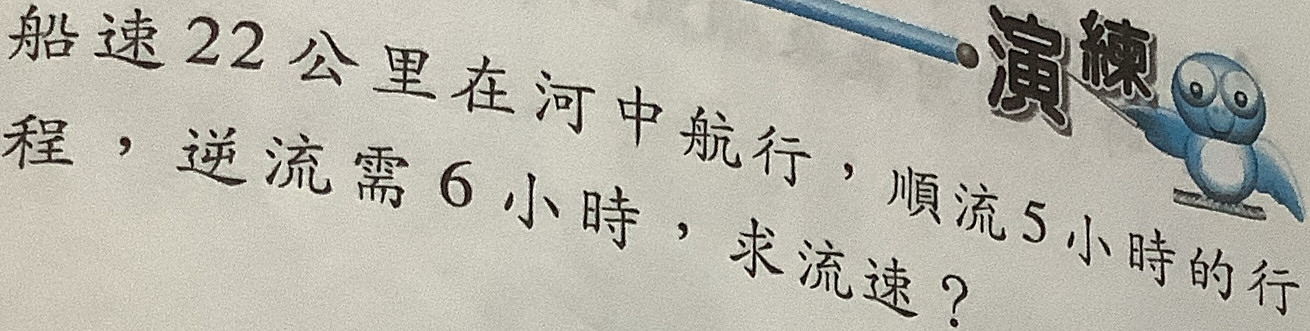 演練
船速22公里在河中航行，順流5小時的行
程，逆流需6小時，求流速？